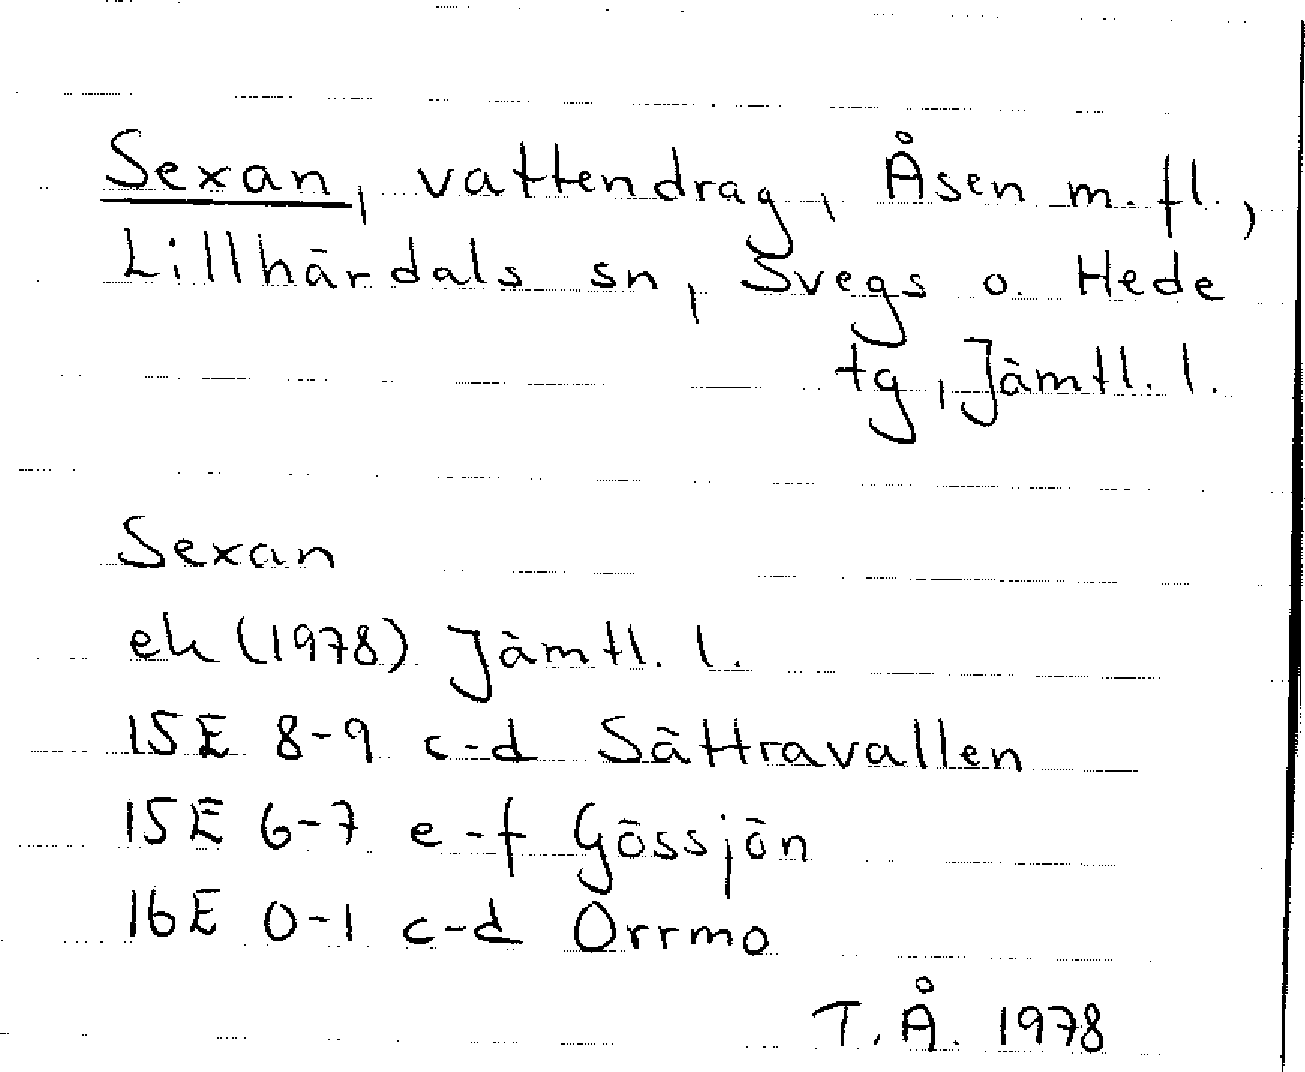 Sexan, vattendrag, Åsen m.fl.,
Lillhärdals sn, Svegs o. Hede
tg, Jämtl. l.
Sexan
ek (1978) Jämtl. l.
15E 8-9 c-d Sättravallen
15E 6-7 e-f Gössjön
16E 0-1 c-d Orrmo
T.Å. 1978